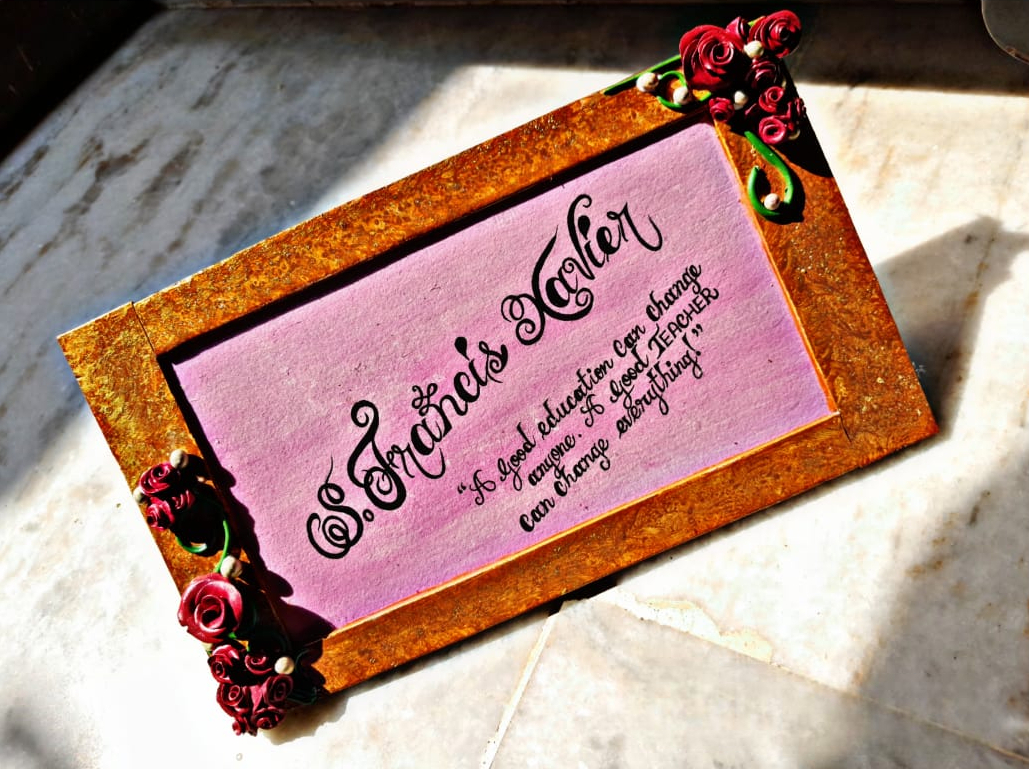 S. Francis Xavier
“A Good education can change
anyone. A Good TEACHER
can change everything!”